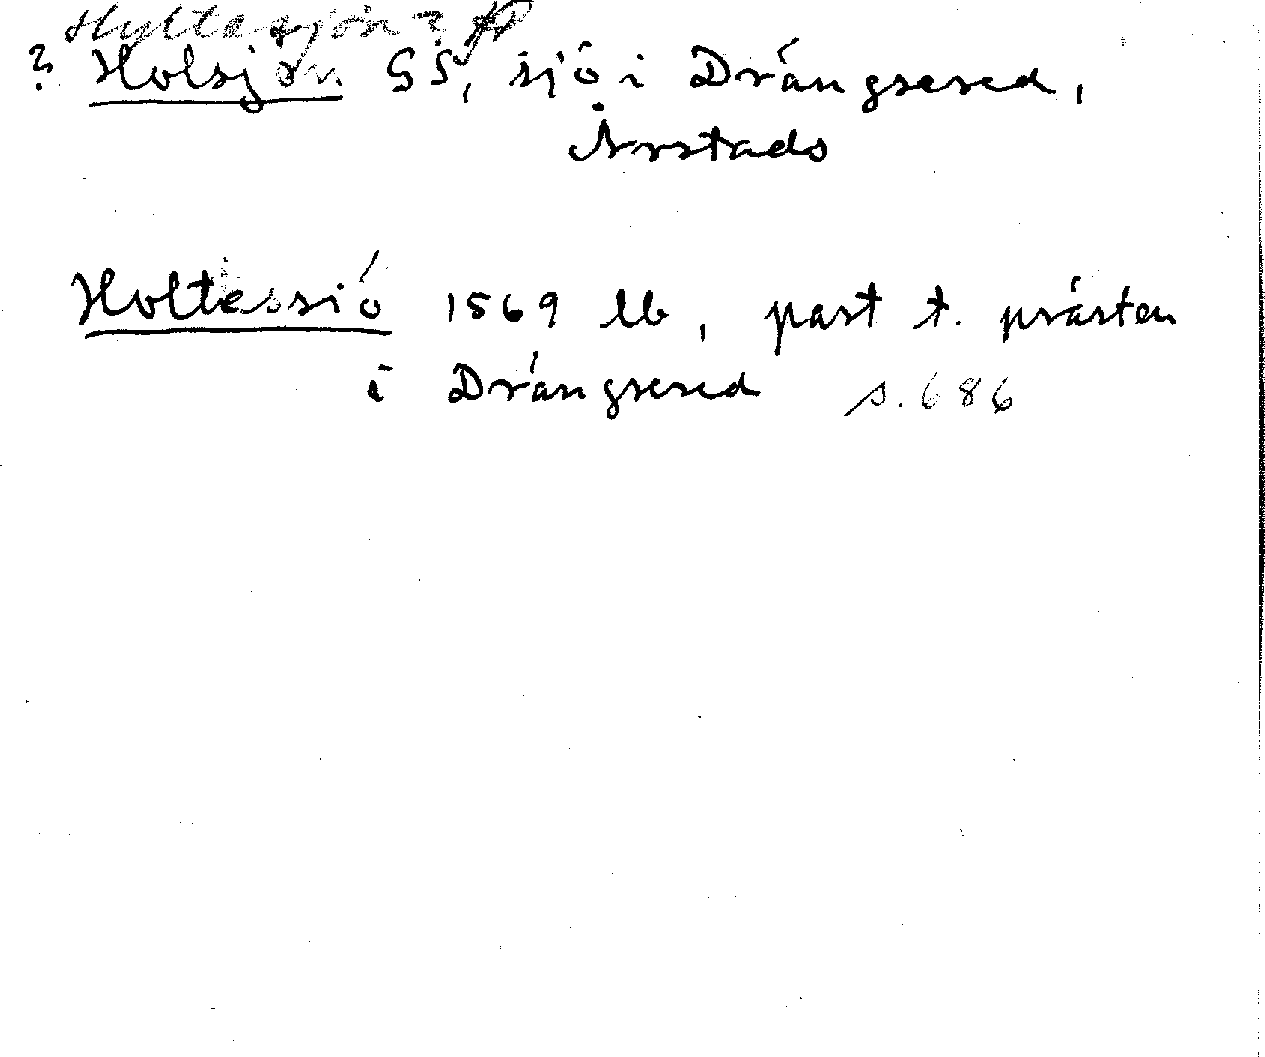 Hyltesjön?
? Holsjön GS, sjö i Drängsered,
Årstads
Holtessiö 1569 lb, part t. prästen
i Drängsered s. 686